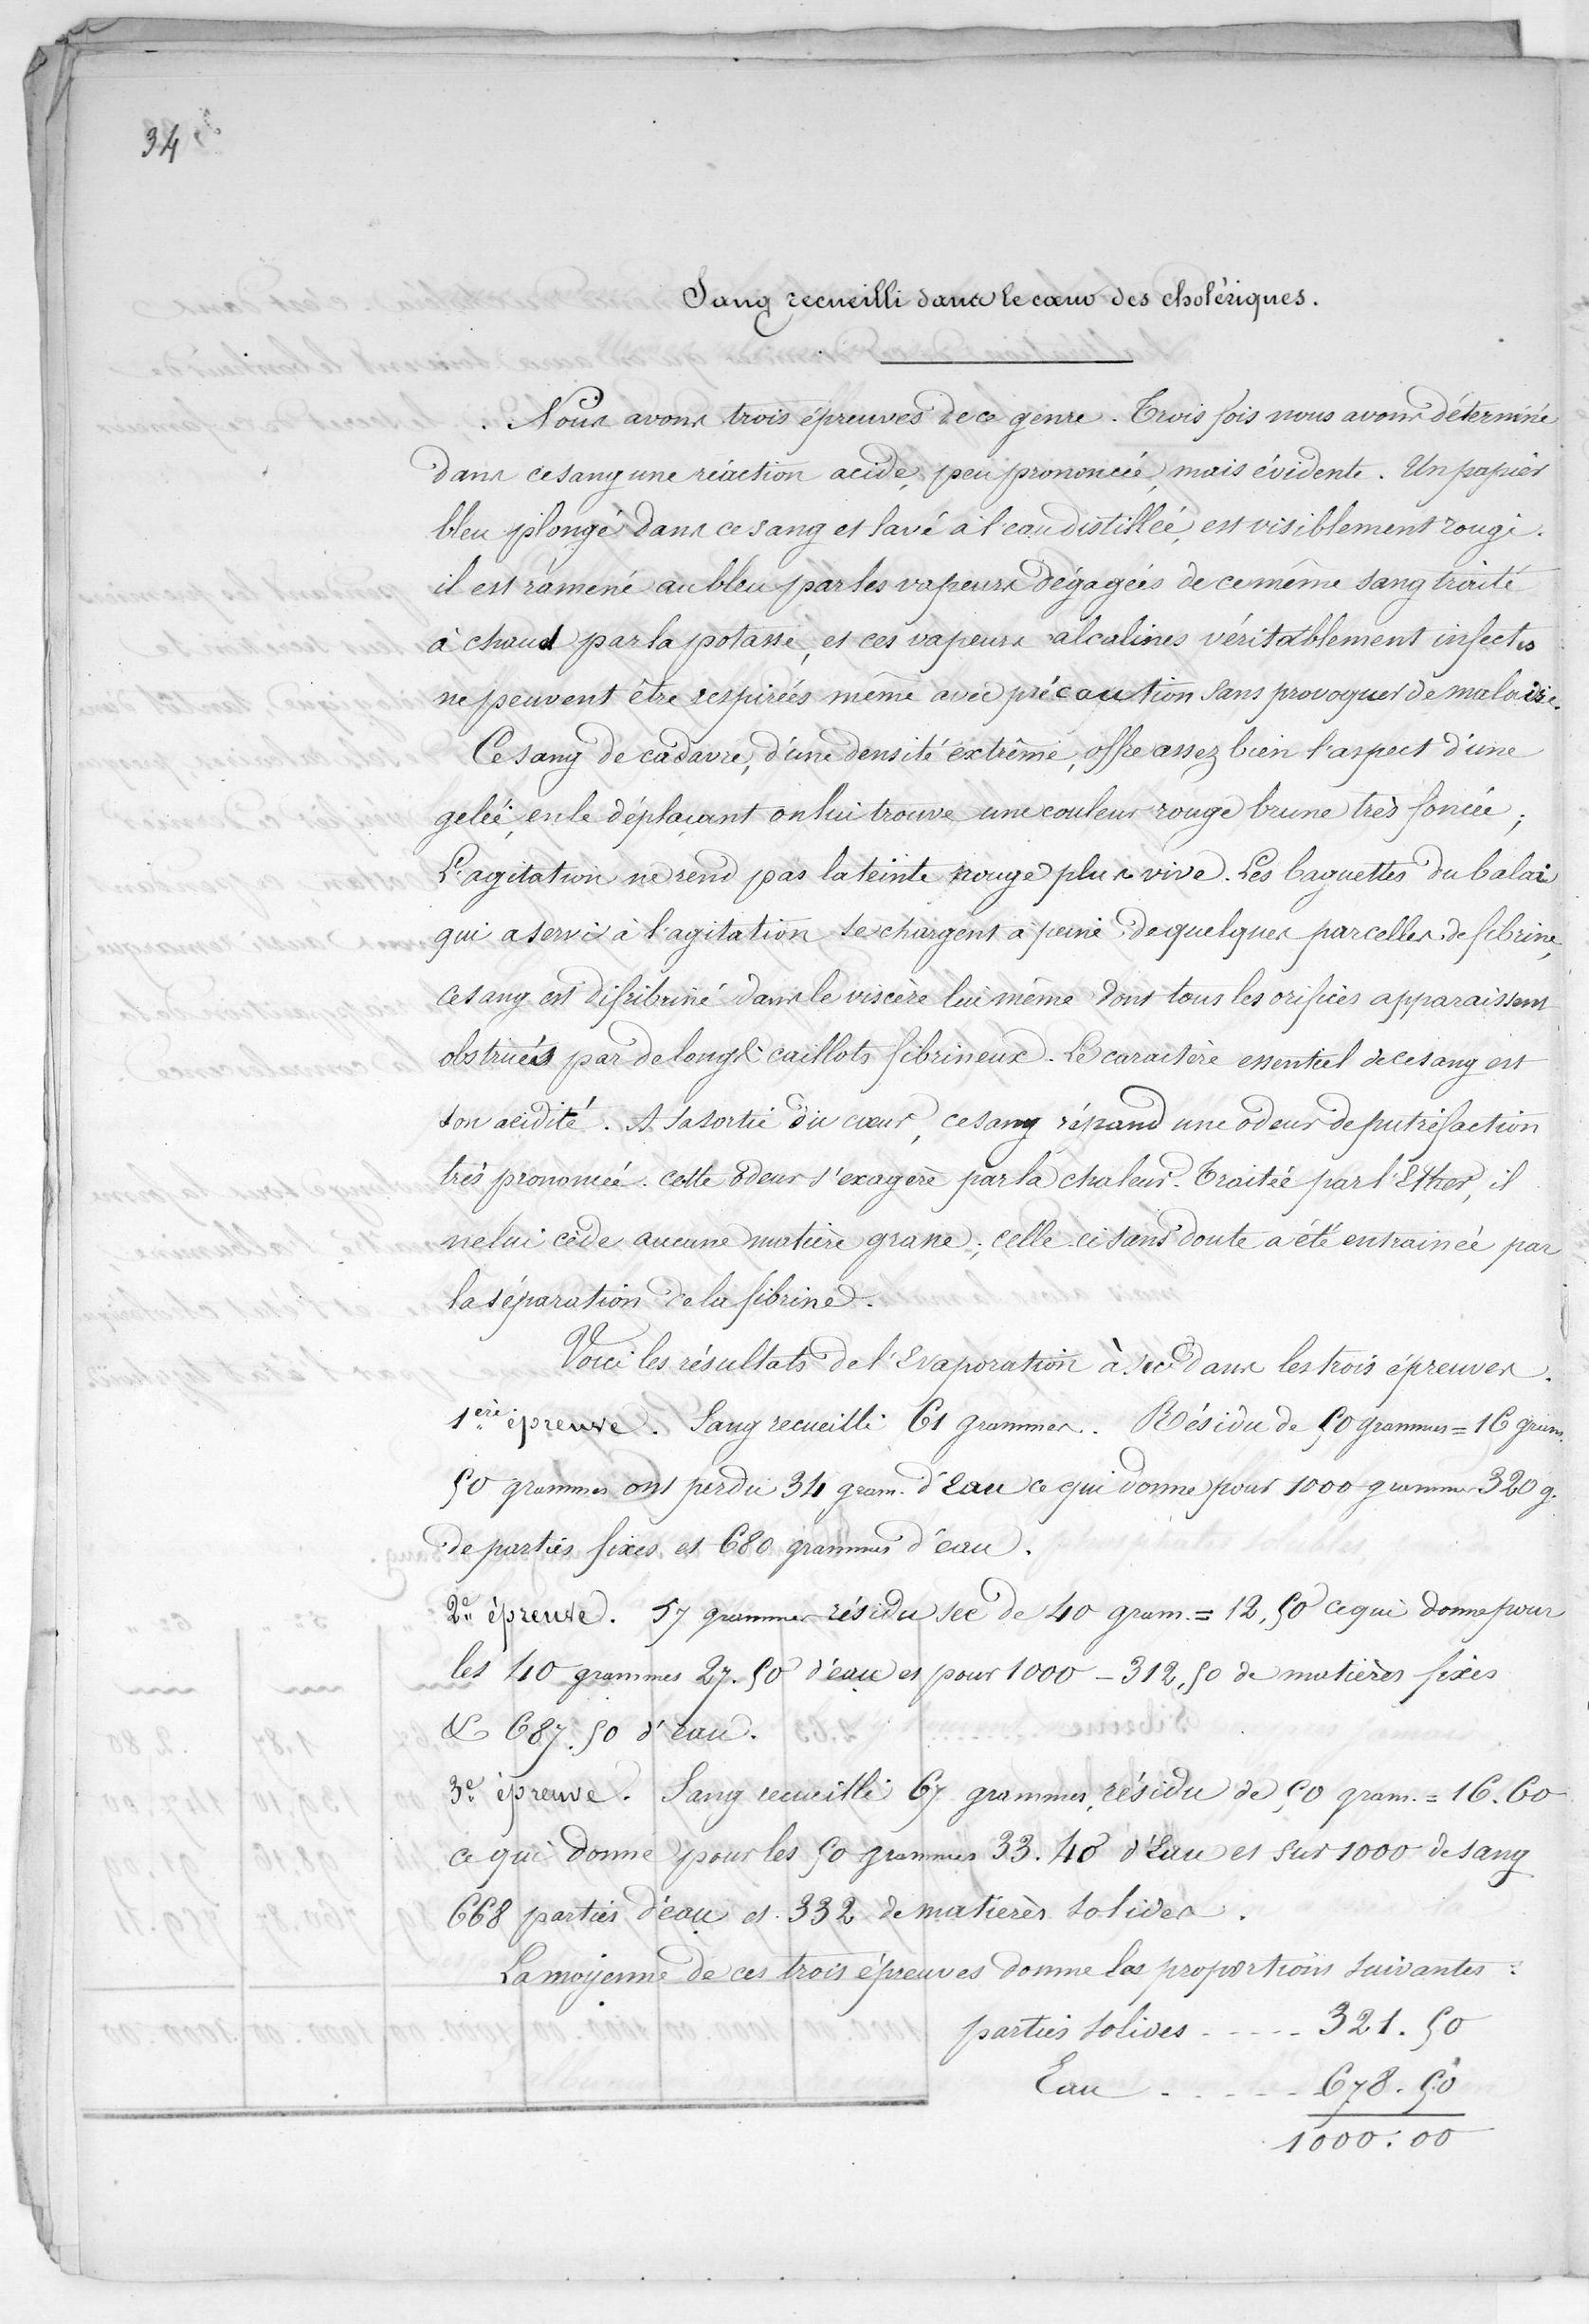 34
Sang recueilli dans le cœur des cholériques.
Nous avons trois épreuves de ce genre. Trois fois nous avons déterminé
dans ce sang une réaction acide, peu prononcée, mais évidente. Un papier
bleu plongé dans ce sang et lavé à l'eau distillée, est visiblement rougi.
il est ramené au bleu par les vapeurs dégagées de ce même sang traité
à chaud par la potasse, et ces vapeurs alcalines véritablement infectes
ne peuvent être respirées même avec précaution sans provoquer de malaise.
Ce sang de cadavre, d'une densité extrême, offre assez bien l'aspect d'une
gelée, en le déplaçant on lui trouve une couleur rouge brune très foncée;
L'agitation ne rend pas la teinte rouge plus vive. Les baguettes du balai
qui a servi à l'agitation se chargent a peine de quelques parcelles de fibrine,
ce sang est difribriné dans le viscère lui même dont tous les orifices apparaissent
obstrués par de longs caillots fibrineux. Le caractère essentiel de ce sang est
son acidité. A sa sortie du cœur, ce sang répand une odeur de putréfaction
très prononcée. cette odeur s'exagère par la chaleur. Traitée par l'Ether, il
ne lui cède aucune matière grasse; celle ci sans doute a été entrainée par
la séparation de la fibrine.
Voici les résultats de l'Evaporation à sec dans les trois épreuves.
1ère épreuve. Sang recueilli 61 grammes. Résidu de 50 grammes = 16 gram.
50 grammes ont perdu 34 gram. d'Eau ce qui donne pour 1000 grammes 320 g.
de parties fixes et 680 grammes d'eau.
2e épreuve. 57 grammes résidu sec de 40 gram. = 12,50 ce qui donne pour
les 40 grammes 27.50 d'eau et pour 1000 - 312,50 de matières fixes
& 687.50 d'eau.
3e épreuve. Sang recueilli 67 grammes, résidu de 50 gram. = 16.60
ce qui donne pour les 50 grammes 33.40 d'Eau et sur 1000 de sang
668 parties d'eau et 332 de matières solides.
La moyenne de ces trois épreuves donne les proportions suivantes:
parties solides ----- 321.50
Eau ----- 678.50
1000.00